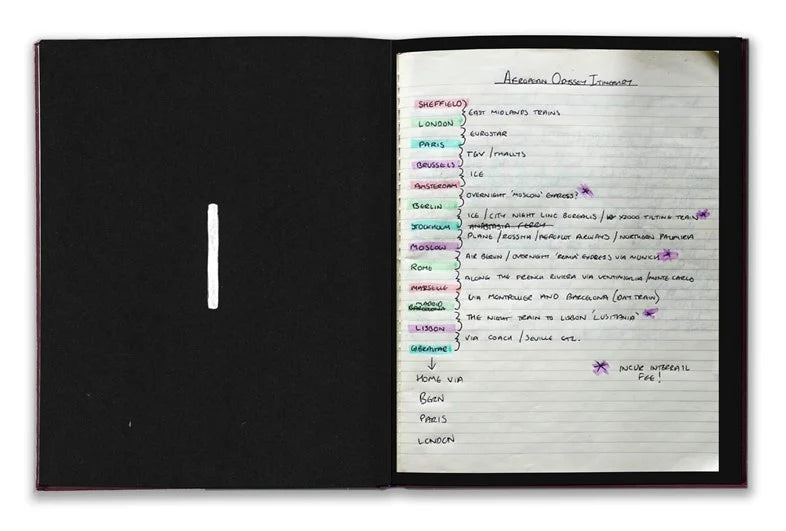 AFROPEAN ODYSSEY ITINERARY
SHEFFIELD
EAST MIDLANDS TRAINS
LONDON
EUROSTAR
PARIS
TGV / THALLYS
BRUSSELS
ICE
AMSTERDAM
OVERNIGHT 'MOSCOW' EXPRESS? *
BERLIN
ICE / CITY NIGHT LINE BOREALIS / X2000 TILTING TRAIN *
STOCKHOLM
ANASTASIA FERRY
PLANE / ROSSIYA / AEROFLOT AIRWAYS / NORTHERN PALMIRA
MOSCOW
AIR BERLIN / OVERNIGHT 'ROMA' EXPRESS VIA MUNICH *
ROME
ALONG THE FRENCH RIVIERA VIA VENTIMIGLIA / MONTE CARLO
MARSEILLE
VIA MONTPELLIER AND BARCELONA (DAY TRAIN)
MADRID
BARCELONA
THE NIGHT TRAIN TO LISBON 'LUSITANIA' *
LISBON
VIA COACH / SEVILLE ETC.
GIBRALTAR
↓
* INCUR INTERRAIL
FEE!
HOME VIA
BERN
PARIS
LONDON